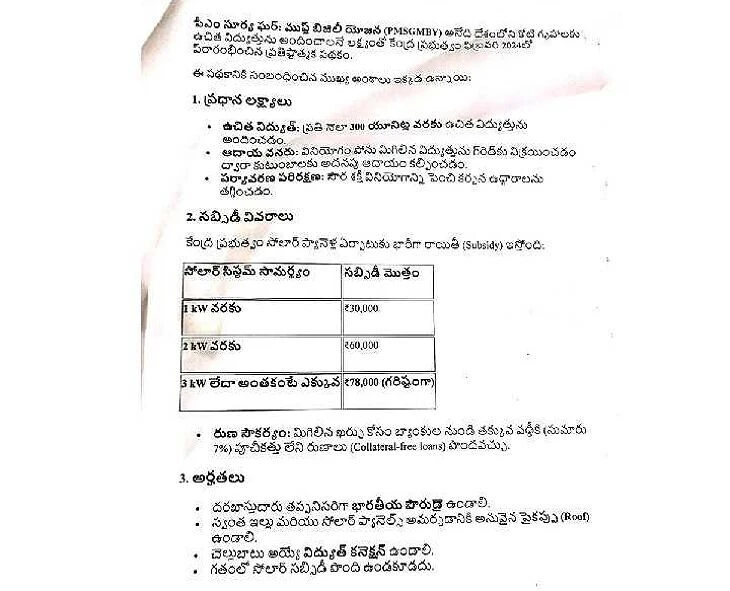 పీఎం సూర్య ఘర్: ముఫ్త్ బిజిలీ యోజన (PMSGMBY) అనేది దేశంలోని కోటి గృహాలకు
ఉచిత విద్యుత్తును అందించాలనే లక్ష్యంతో కేంద్ర ప్రభుత్వం ఫిబ్రవరి 2024లో
ప్రారంభించిన ప్రతిష్ఠాత్మక పథకం.
ఈ పథకానికి సంబంధించిన ముఖ్య అంశాలు ఇక్కడ ఉన్నాయి:
1. ప్రధాన లక్ష్యాలు
• ఉచిత విద్యుత్: ప్రతి నెలా 300 యూనిట్ల వరకు ఉచిత విద్యుత్తును
అందించడం.
• ఆదాయ వనరు: వినియోగం పోను మిగిలిన విద్యుత్తును గ్రిడ్‌కు విక్రయించడం
ద్వారా కుటుంబాలకు అదనపు ఆదాయం కల్పించడం.
• పర్యావరణ పరిరక్షణ: సౌర శక్తి వినియోగాన్ని పెంచి కర్బన ఉద్గారాలను
తగ్గించడం.
2. సబ్సిడీ వివరాలు
కేంద్ర ప్రభుత్వం సోలార్ ప్యానెళ్ల ఏర్పాటుకు భారీగా రాయితీ (Subsidy) ఇస్తోంది:
సోలార్ సిస్టమ్ సామర్థ్యం సబ్సిడీ మొత్తం
1 kW వరకు ₹30,000
2 kW వరకు ₹60,000
3 kW లేదా అంతకంటే ఎక్కువ ₹78,000 (గరిష్టంగా)
• రుణ సౌకర్యం: మిగిలిన ఖర్చు కోసం బ్యాంకుల నుండి తక్కువ వడ్డీకి (సుమారు
7%) పూచీకత్తు లేని రుణాలు (Collateral-free loans) పొందవచ్చు.
3. అర్హతలు
• దరఖాస్తుదారు తప్పనిసరిగా భారతీయ పౌరుడై ఉండాలి.
• స్వంత ఇల్లు మరియు సోలార్ ప్యానెల్స్ అమర్చడానికి అనువైన పైకప్పు (Roof)
ఉండాలి.
• చెల్లుబాటు అయ్యే విద్యుత్ కనెక్షన్ ఉండాలి.
• గతంలో సోలార్ సబ్సిడీ పొంది ఉండకూడదు.